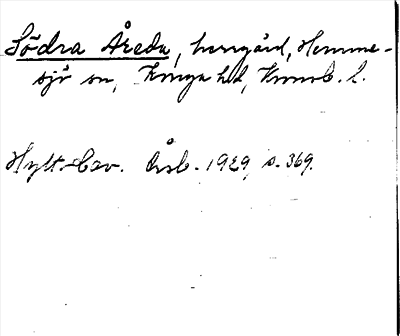 Södra Åreda, herrgård, Hemme-
sjö sn, Konga hd, Kronob. l.
Hylt.-Cav. Årsb. 1929, s. 369.